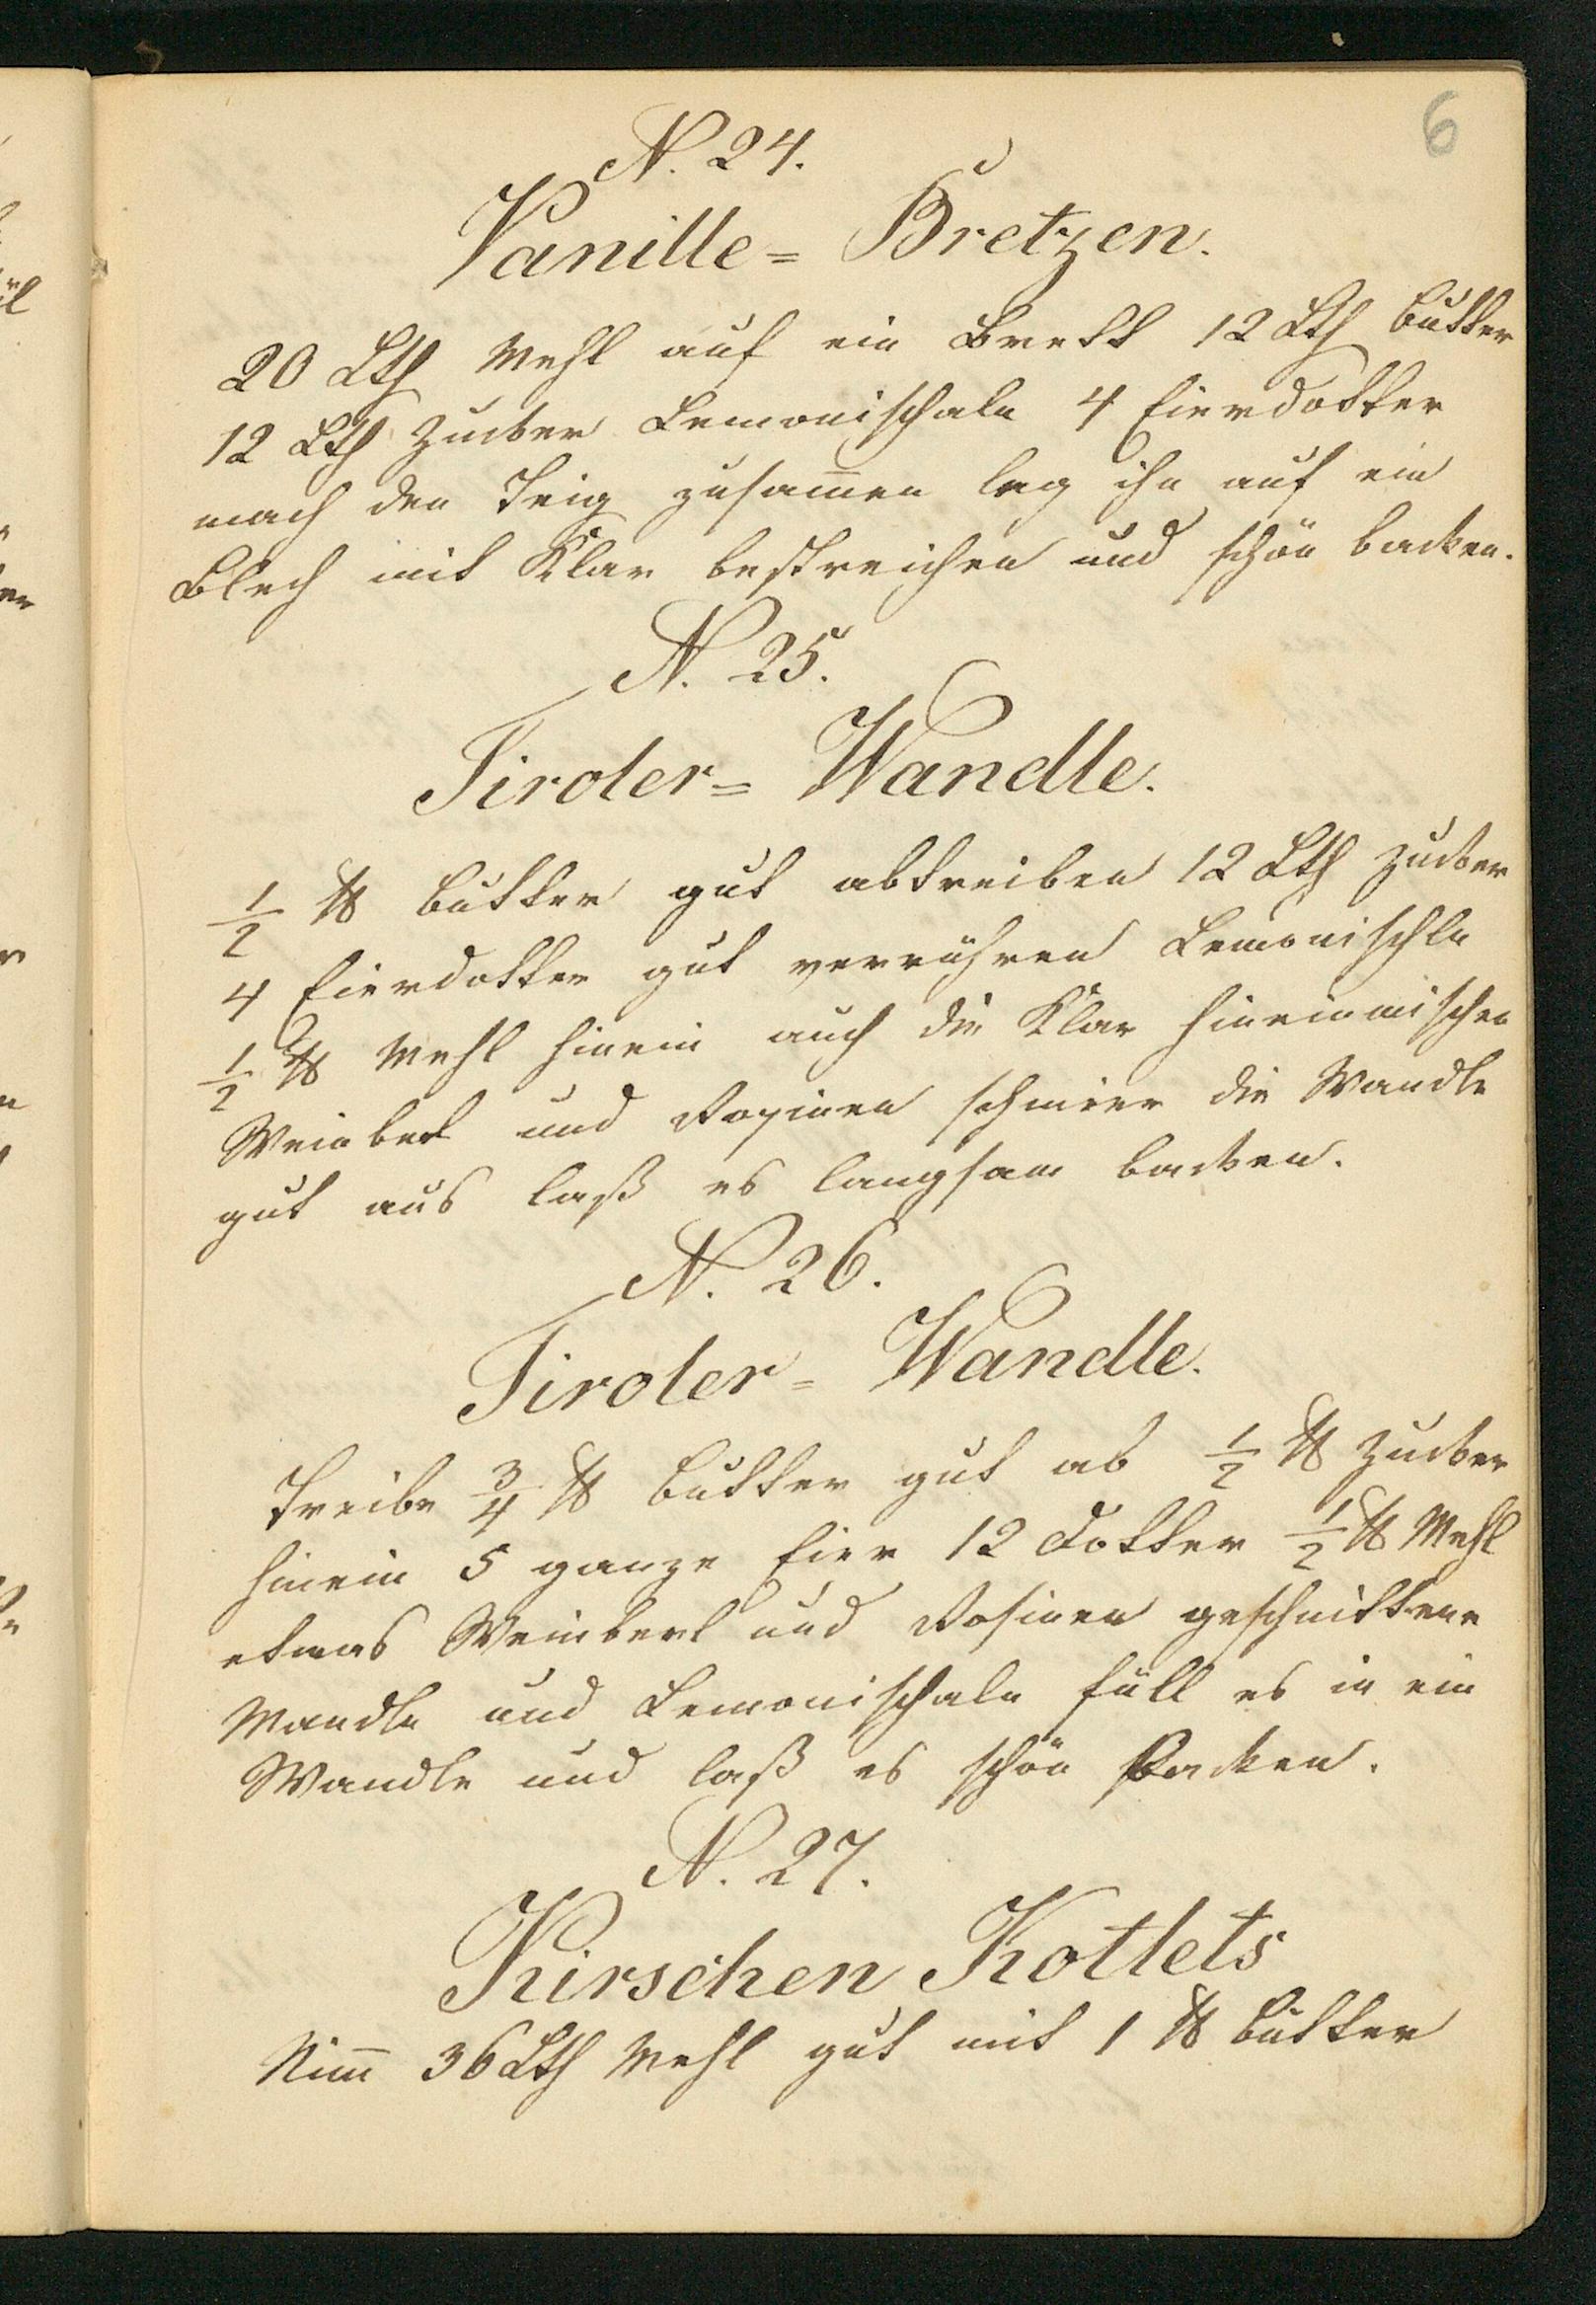 6
N. 24.
Vanille= Bretzen.
20 Lth Mehl auf ein Brett 12 Lth Butter
12 Lth Zucker Lemonischale 4 Eierdotter
mach den Teig zusam̅en leg ihn auf ein
Blech mit Klar bestreichen und schön backen.
N. 25.
Tiroler= Wandle.
1/2 ℔ Butter gut abtreiben 12 Lth Zucker
4 Eierdotter gut verrühren Lemonischle
1/2 ℔ Mehl hinein auch die Klar hineinmischen
Weinberl und Rosinen schmier die Wandle
gut aus laß es langsam backen.
N. 26.
Tiroler= Wandle.
Treibe 3/4 ℔ Butter gut ab 1/2 ℔ Zucker
hinein 5 ganze Eier 12 Dotter 1/2 ℔ Mehl
etwas Weinberl und Rosinen geschnittene
Mandle und Lemonischale füll es in ein
Wandle und laß es schön backen.
N. 27.
Kirschen Kotlets
Nim̅ 36 Lth Mehl gut mit 1 ℔ Butter